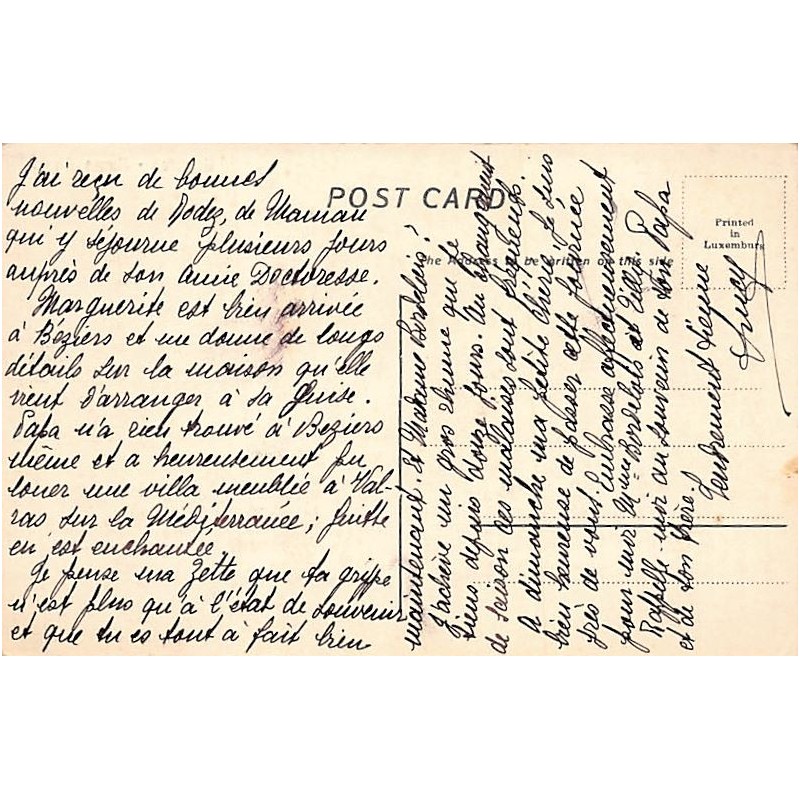 J'ai reçu de bonnes
nouvelles de Dodez, de Maman
qui y séjourne plusieurs jours
auprès de son Amie Doctoresse.
Marguerite est bien arrivée
à Béziers et me donne de longs
détails sur la maison qu'elle
vient d'arranger à sa guise.
Papa n'a rien trouvé à Béziers
même et a heureusement pu
louer une villa meublée à Val-
ras sur la Méditerranée; Guitte
en est enchantée.
Je pense ma Zette que ta grippe
n'est plus qu'à l'état de souvenir
et que tu es tout à fait bien
POST CARD
The Address to be written on this side
Printed
in
Luxemburg
maintenant. Et Madame Bordelais?
J'achève un gros rhume que je
tiens depuis douze jours. Au changement
de saison ces malaises sont fréquents.
A dimanche ma petite chérie, je suis
bien heureuse de passer cette journée
près de vous. Embrasse affectueusement
pour moi Mme Bordelais et
Rappelle-moi au souvenir de ton Papa
et de ton frère.
Tendrement tienne